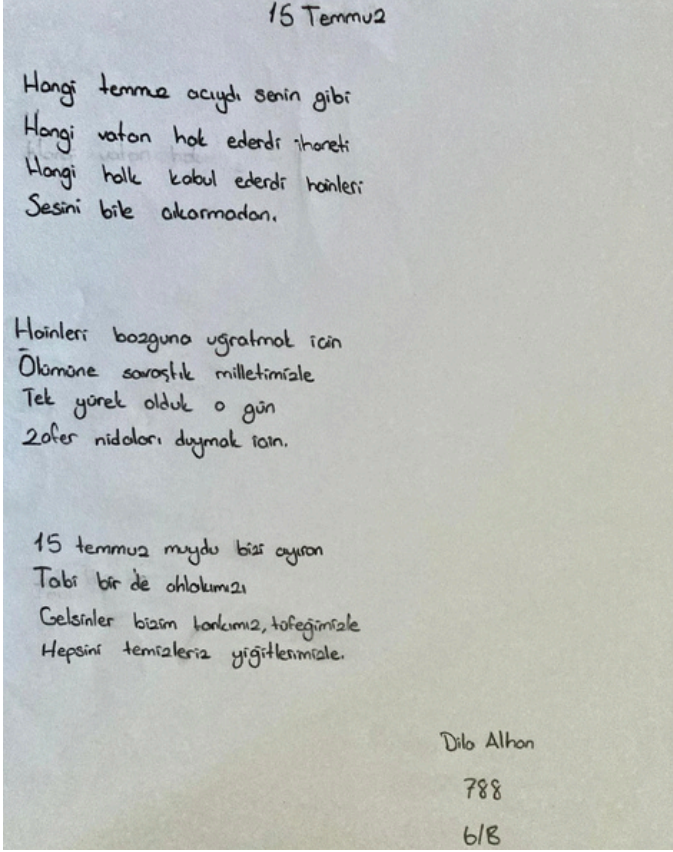 15 Temmuz
Hangi temmuz acıydı senin gibi
Hangi vatan hak ederdi ihaneti
Hangi halk kabul ederdi hainleri
Sesini bile çıkarmadan.
Hainleri bozguna uğratmak için
Ölümüne savaştık milletimizle
Tek yürek olduk o gün
Zafer nidaları duymak için.
15 temmuz muydu bizi ayıran
Tabi bir de ahlakımızı
Gelsinler bizim tankımız, tüfeğimizle
Hepsini temizleriz yiğitlerimizle.
Dila Alhan
788
6/B